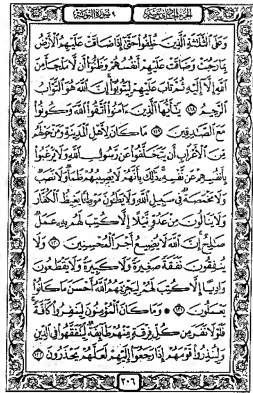 الجزء الحادي عشر ٩ سورة التوبة
وَعَلَى الثَّلَاثَةِ الَّذِينَ خُلِّفُوا حَتَّىٰ إِذَا ضَاقَتْ عَلَيْهِمُ الْأَرْضُ
بِمَا رَحُبَتْ وَضَاقَتْ عَلَيْهِمْ أَنفُسُهُمْ وَظَنُّوا أَن لَّا مَلْجَأَ مِنَ
اللَّهِ إِلَّا إِلَيْهِ ثُمَّ تَابَ عَلَيْهِمْ لِيَتُوبُوا إِنَّ اللَّهَ هُوَ التَّوَّابُ
الرَّحِيمُ ١١٨ يَا أَيُّهَا الَّذِينَ ءَامَنُوا اتَّقُوا اللَّهَ وَكُونُوا
مَعَ الصَّادِقِينَ ١١٩ مَا كَانَ لِأَهْلِ الْمَدِينَةِ وَمَنْ حَوْلَهُم
مِّنَ الْأَعْرَابِ أَن يَتَخَلَّفُوا عَن رَّسُولِ اللَّهِ وَلَا يَرْغَبُوا
بِأَنفُسِهِمْ عَن نَّفْسِهِ ذَٰلِكَ بِأَنَّهُمْ لَا يُصِيبُهُمْ ظَمَأٌ وَلَا نَصَبٌ
وَلَا مَخْمَصَةٌ فِي سَبِيلِ اللَّهِ وَلَا يَطَئُونَ مَوْطِئًا يَغِيظُ الْكُفَّارَ
وَلَا يَنَالُونَ مِنْ عَدُوٍّ نَّيْلًا إِلَّا كُتِبَ لَهُم بِهِ عَمَلٌ
صَالِحٌ إِنَّ اللَّهَ لَا يُضِيعُ أَجْرَ الْمُحْسِنِينَ ١٢٠ وَلَا
يُنفِقُونَ نَفَقَةً صَغِيرَةً وَلَا كَبِيرَةً وَلَا يَقْطَعُونَ
وَادِيًا إِلَّا كُتِبَ لَهُمْ لِيَجْزِيَهُمُ اللَّهُ أَحْسَنَ مَا كَانُوا
يَعْمَلُونَ ١٢١ وَمَا كَانَ الْمُؤْمِنُونَ لِيَنفِرُوا كَافَّةً
فَلَوْلَا نَفَرَ مِن كُلِّ فِرْقَةٍ مِّنْهُمْ طَائِفَةٌ لِّيَتَفَقَّهُوا فِي الدِّينِ
وَلِيُنذِرُوا قَوْمَهُمْ إِذَا رَجَعُوا إِلَيْهِمْ لَعَلَّهُمْ يَحْذَرُونَ ١٢٢
٢٠٦